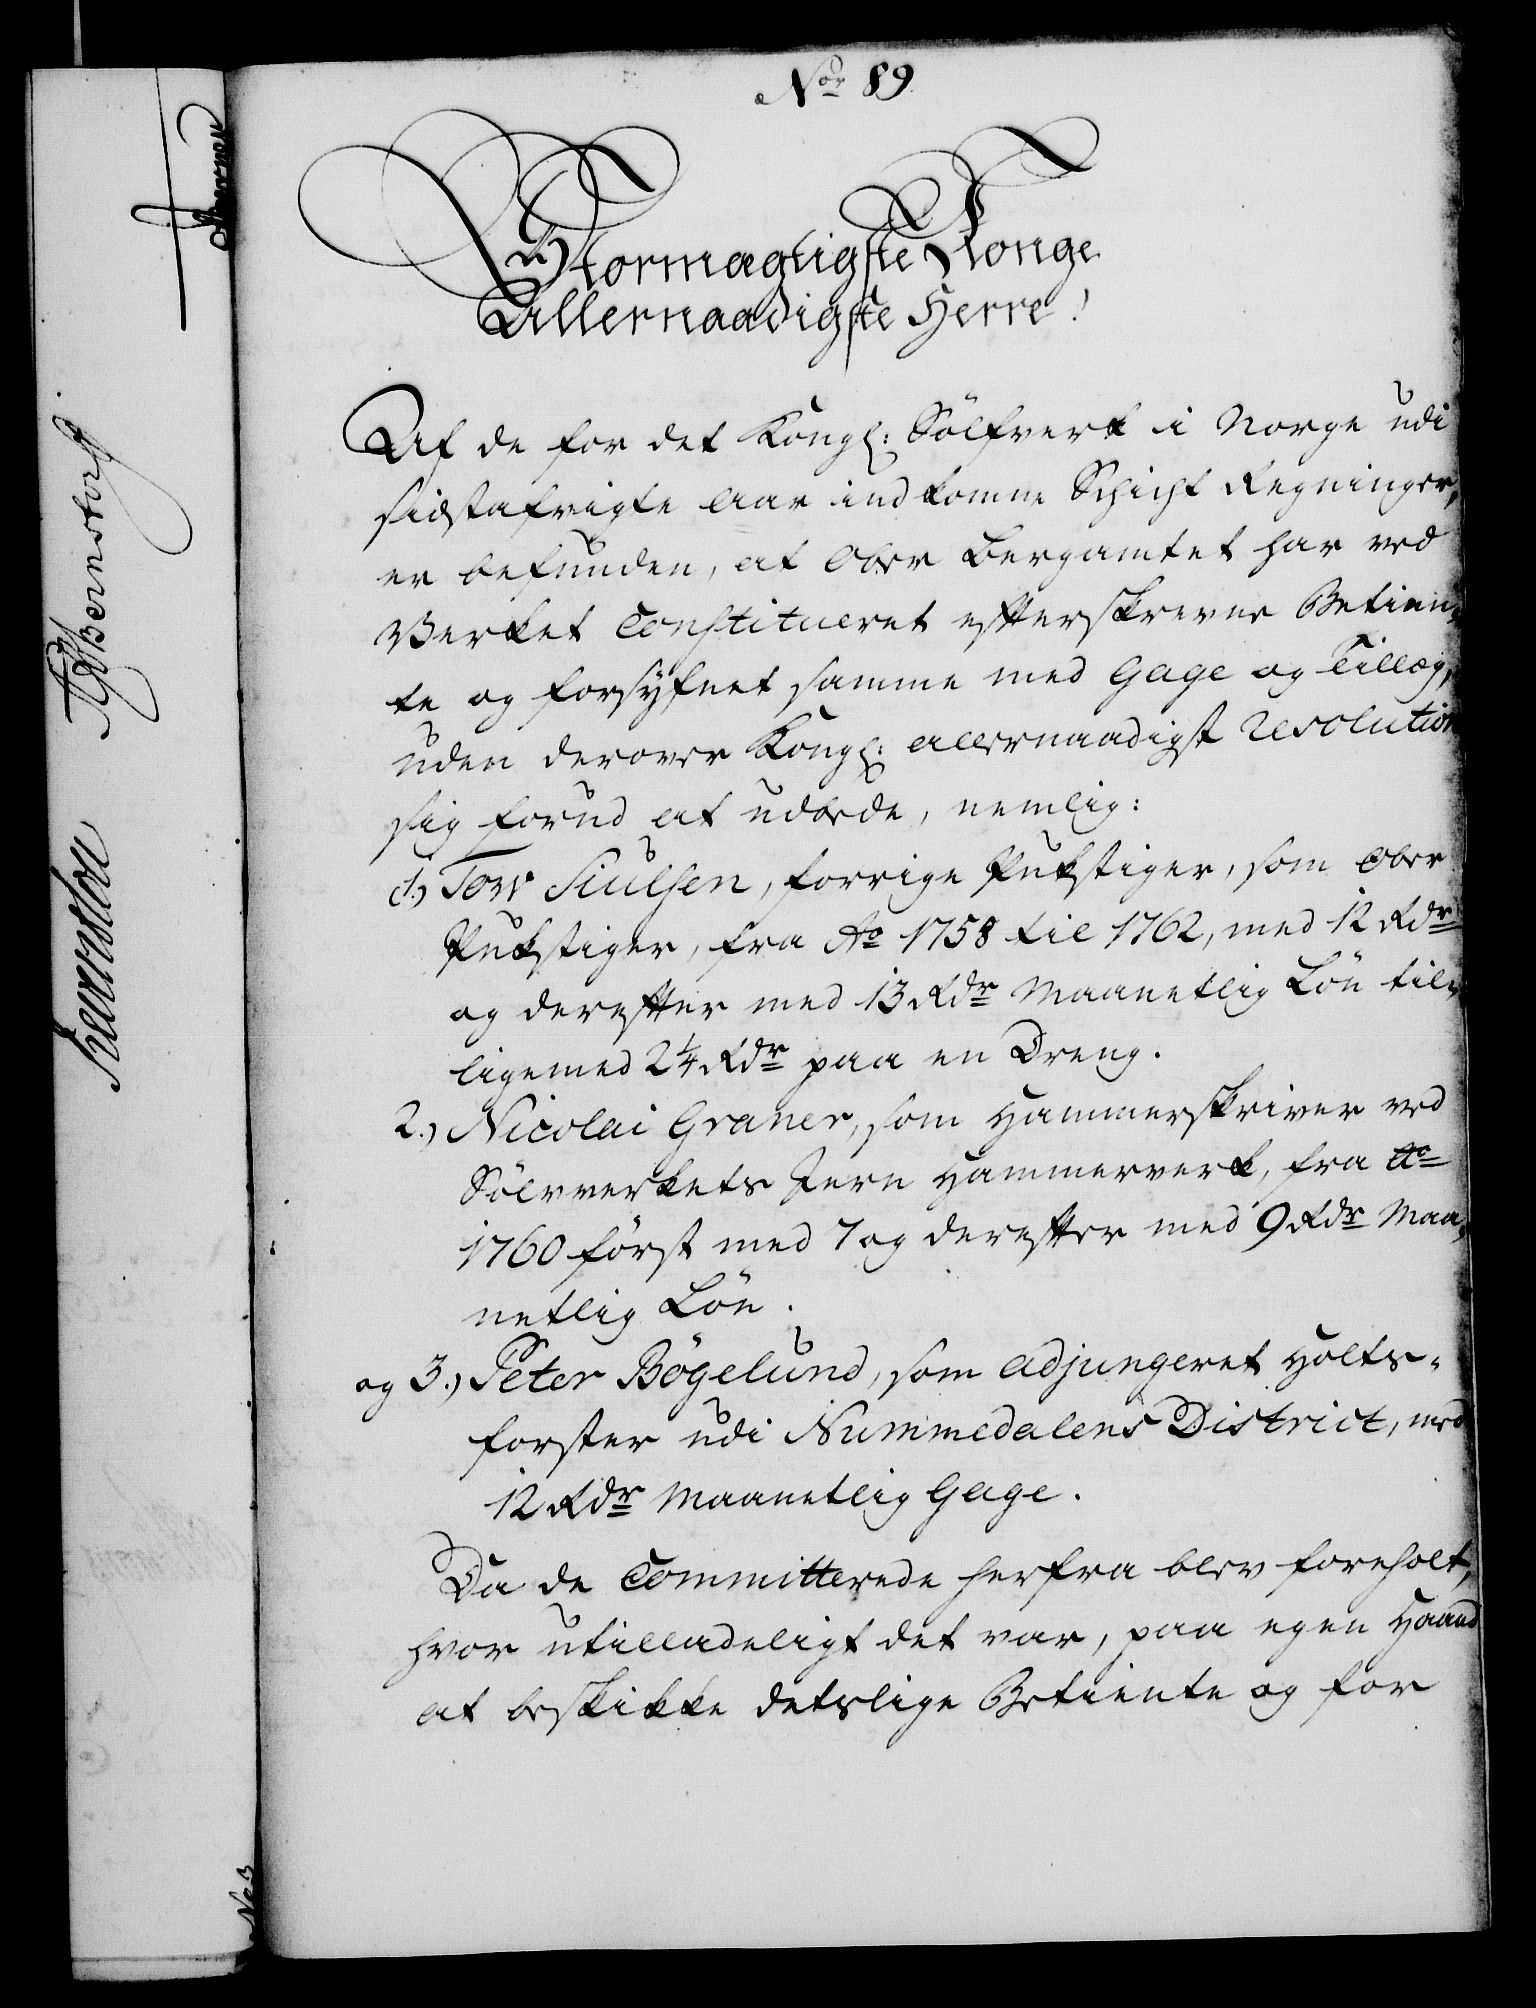 Nor 89
Stormægtigste Konge
Allernaadigste Herre!
Af de for det Kongl: Sölfverk i Norge udi
sidstafvigte Aar indkomne Schicht Regninger,
er befunden, at Ober Bergamtet har ved
Verket Constitueret efterskrevne Betien-
te og forsyfnet samme med Gage og Tillæg,
uden derover Kongl: allernaadigst Resolution
sig forud at udbede, nemlig:
1.) Tov Siulsen, forrige Pukstiger, som Ober
Pukstiger, fra Ao 1758 til 1762, med 12 Rdr
og derefter med 13 Rdr Maanetlig Lön til-
ligemed 2 1/4 Rdr paa en Dreng.
2.) Nicolai Graner, som Hammerskriver ved
Sölvverkets Jern Hammerverk, fra Ao
1760 först med 7 og derefter med 9 Rdr Maa-
netlig Lön.
og 3.) Peter Bögelund, som adjungeret Holts-
forster udi Nummedalens District, med
12 Rdr Maanetlig Gage.
Da de Committerede herfra blev foreholt,
hvor utilladeligt det var, paa egen Haand
at beskikke detslige Betiente og for
Bernstorff